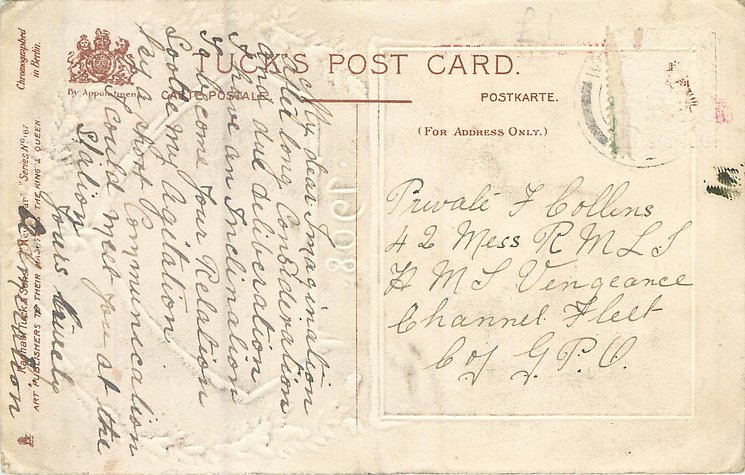 TUCK'S POST CARD.
By Appointment
CARTE POSTALE
POSTKARTE.
(FOR ADDRESS ONLY.)
My dear Imagination
after long Consideration
and due deliberation
I have an Inclination
to become your Relation
So ease my agitation
by a short Communication
I could meet you at the
Station
Yours truly
Private F Collins
42 Mess R M L I
H M S Vengeance
Channel Fleet
C/o G.P.O.
1908
Raphael Tuck & Sons' "New Year" "Series No. 187
ART PUBLISHERS TO THEIR MAJESTIES THE KING & QUEEN
Chromographed
in Berlin.